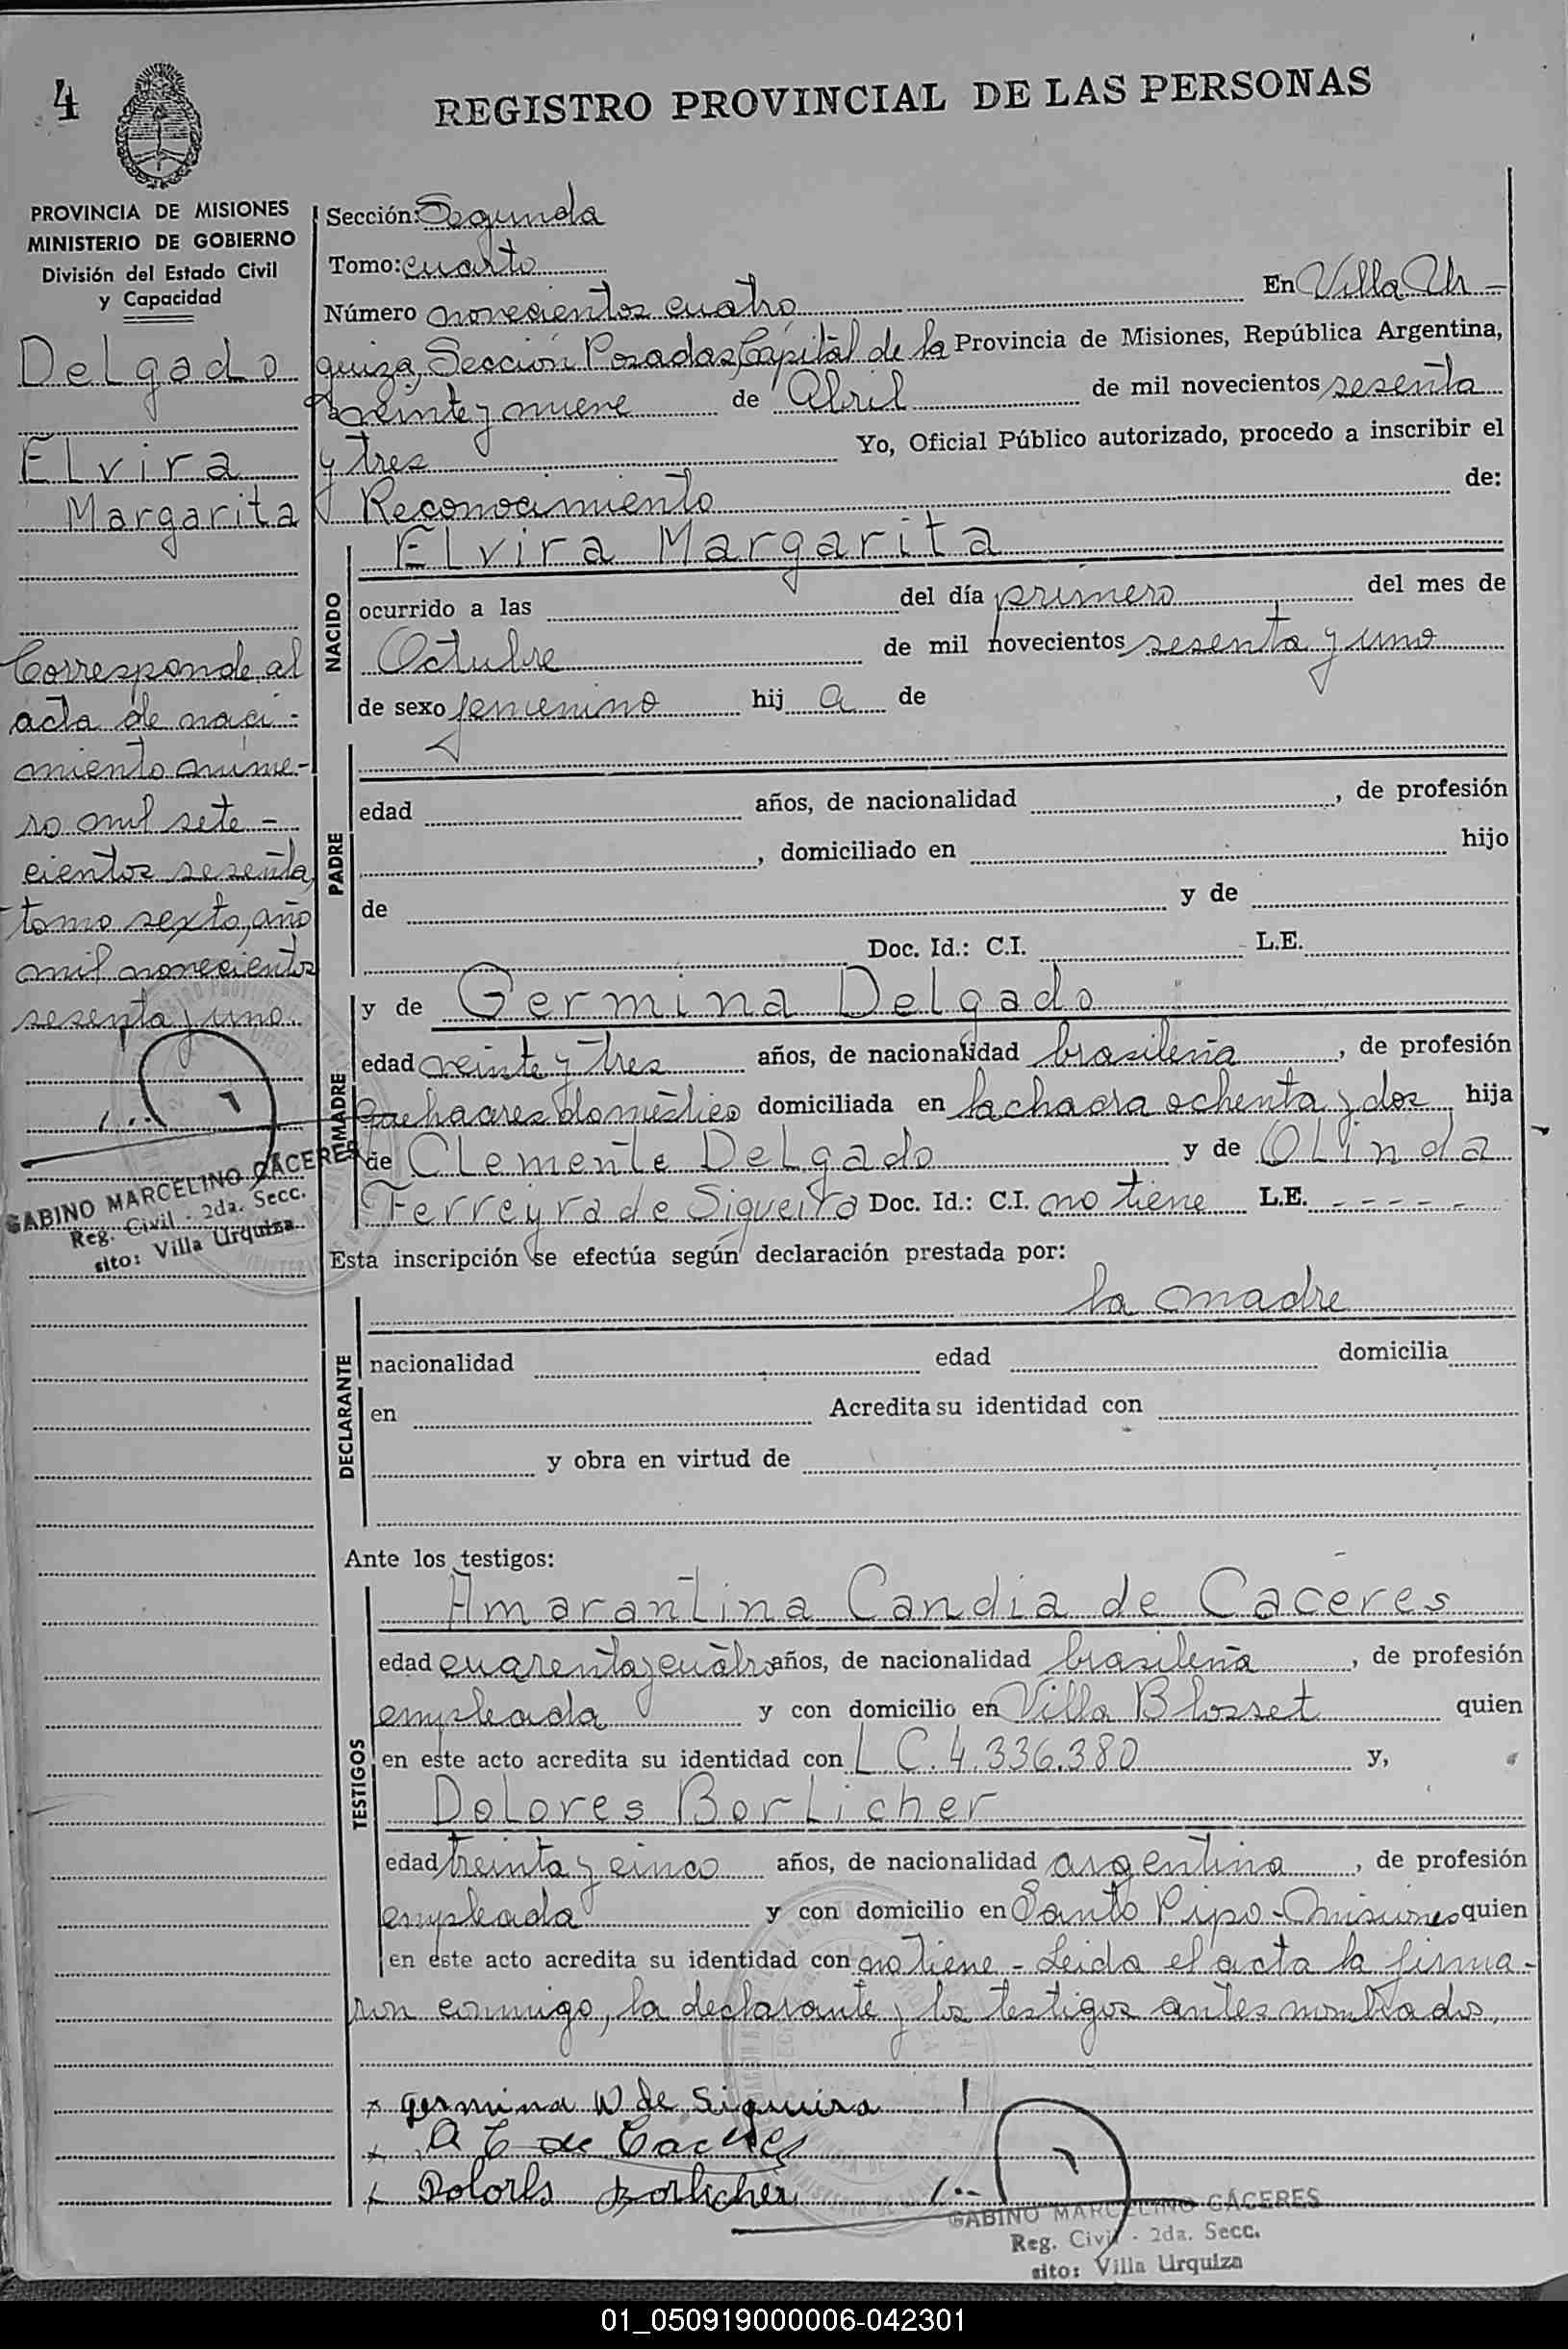 4
REGISTRO PROVINCIAL DE LAS PERSONAS
PROVINCIA DE MISIONES
MINISTERIO DE GOBIERNO
División del Estado Civil
y Capacidad
Delgado
Elvira
Margarita
Corresponde al
acta de naci-
miento núme-
ro mil sete-
cientos sesenta,
tomo sexto, año
mil novecientos
sesenta y uno.
GABINO MARCELINO CÁCERES
Reg. Civil - 2da. Secc.
sito: Villa Urquiza
Sección: Segunda
Tomo: cuarto
Número novecientos cuatro En Villa Ur-
quiza, Sección Posadas, Capital de la Provincia de Misiones, República Argentina,
a veinte y nueve de Abril de mil novecientos sesenta
y tres Yo, Oficial Público autorizado, procedo a inscribir el
Reconocimiento de:
Elvira Margarita
NACIDO
ocurrido a las del día primero del mes de
Octubre de mil novecientos sesenta y uno
de sexo femenino hij a de
PADRE
edad años, de nacionalidad , de profesión
, domiciliado en hijo
de y de
Doc. Id.: C.I. L.E.
MADRE
y de Germina Delgado
edad veinte y tres años, de nacionalidad brasileña, de profesión
quehaceres doméstico domiciliada en la chacra ochenta y dos hija
de Clemente Delgado y de Olinda
Ferreyra de Sigueira Doc. Id.: C.I. no tiene L.E. - - - - -
Esta inscripción se efectúa según declaración prestada por:
la madre
DECLARANTE
nacionalidad edad domicilia
en Acredita su identidad con
y obra en virtud de
Ante los testigos:
TESTIGOS
Amarantina Candia de Caceres
edad cuarenta y cuatro años, de nacionalidad brasileña, de profesión
empleada y con domicilio en Villa Blosset quien
en este acto acredita su identidad con L C. 4.336.380 y,
Dolores Borlicher
edad treinta y cinco años, de nacionalidad argentina, de profesión
empleada y con domicilio en Santo Pipo - Misiones quien
en este acto acredita su identidad con no tiene - Leida el acta la firma-
ron conmigo, la declarante y los testigos antes nombrados,
x germina W de Siqueira
x A C de Caceres
x Dolores Borlicher
GABINO MARCELINO CÁCERES
Reg. Civil - 2da. Secc.
sito: Villa Urquiza
01_050919000006-042301